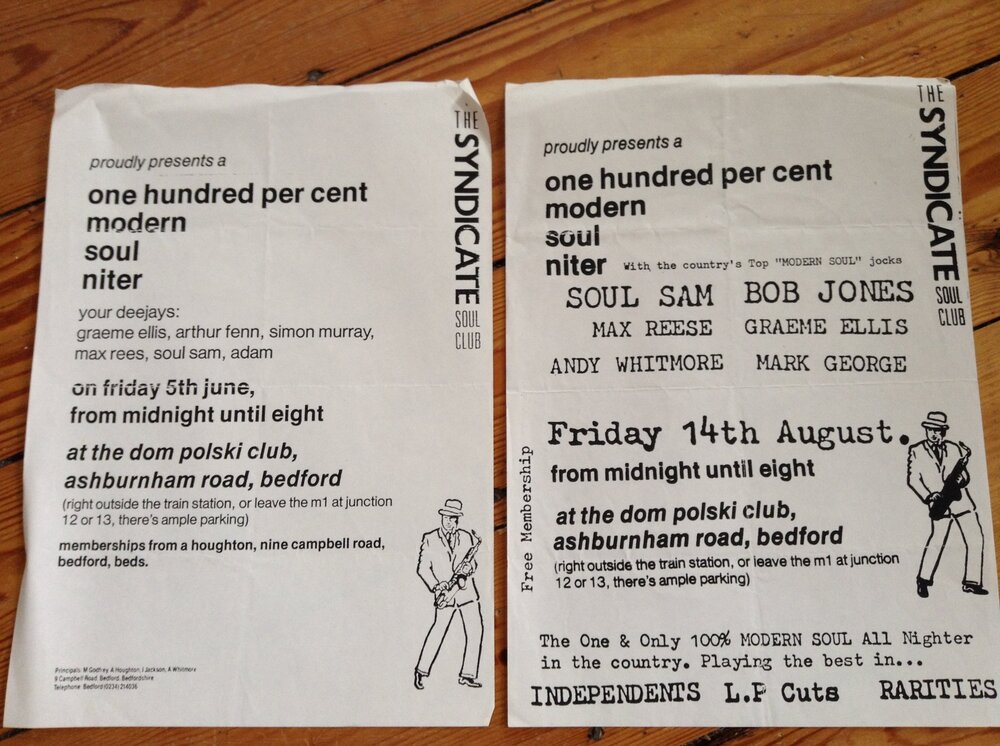 THE SYNDICATE SOUL CLUB
proudly presents a
one hundred per cent
modern
soul
niter
your deejays:
graeme ellis, arthur fenn, simon murray,
max rees, soul sam, adam
on friday 5th june,
from midnight until eight
at the dom polski club,
ashburnham road, bedford
(right outside the train station, or leave the m1 at junction
12 or 13, there's ample parking)
memberships from a houghton, nine campbell road,
bedford, beds.
Principals: M Godfrey, A Houghton, I Jackson, A Whitmore
9 Campbell Road, Bedford, Bedfordshire
Telephone: Bedford (0234) 214036
THE SYNDICATE SOUL CLUB
proudly presents a
one hundred per cent
modern
soul
niter With the country's Top "MODERN SOUL" jocks
SOUL SAM BOB JONES
MAX REESE GRAEME ELLIS
ANDY WHITMORE MARK GEORGE
Friday 14th August.
from midnight until eight
Free Membership
at the dom polski club,
ashburnham road, bedford
(right outside the train station, or leave the m1 at junction
12 or 13, there's ample parking)
The One & Only 100% MODERN SOUL All Nighter
in the country. Playing the best in...
INDEPENDENTS L.P Cuts RARITIES